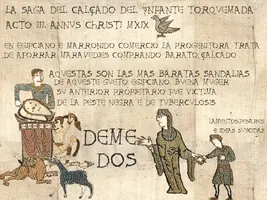 LA SAGA DEL CALÇADO DEL YNFANTE TORQUEMADA
ACTO III. ANNVS CHRISTI MXIX
EN EGIPCIANO E MARRONIDO COMERCIO LA PROGENITORA TRATA
DE AFORRAR MARAVEDES COMPRANDO BARATO CALÇADO
AQVESTAS SON LAS MAS BARATAS SANDALIAS
DE AQVESTE GVETO EGIPCIANO, BVENA MVGER
SV ANTERIOR PROPIETARIO FVE VICTIMA
DE LA PESTE NEGRA E DE TVBERCVLOSIS
LAMENTOS, PESARES
E IDEAS SUICIDAS
DEME
DOS